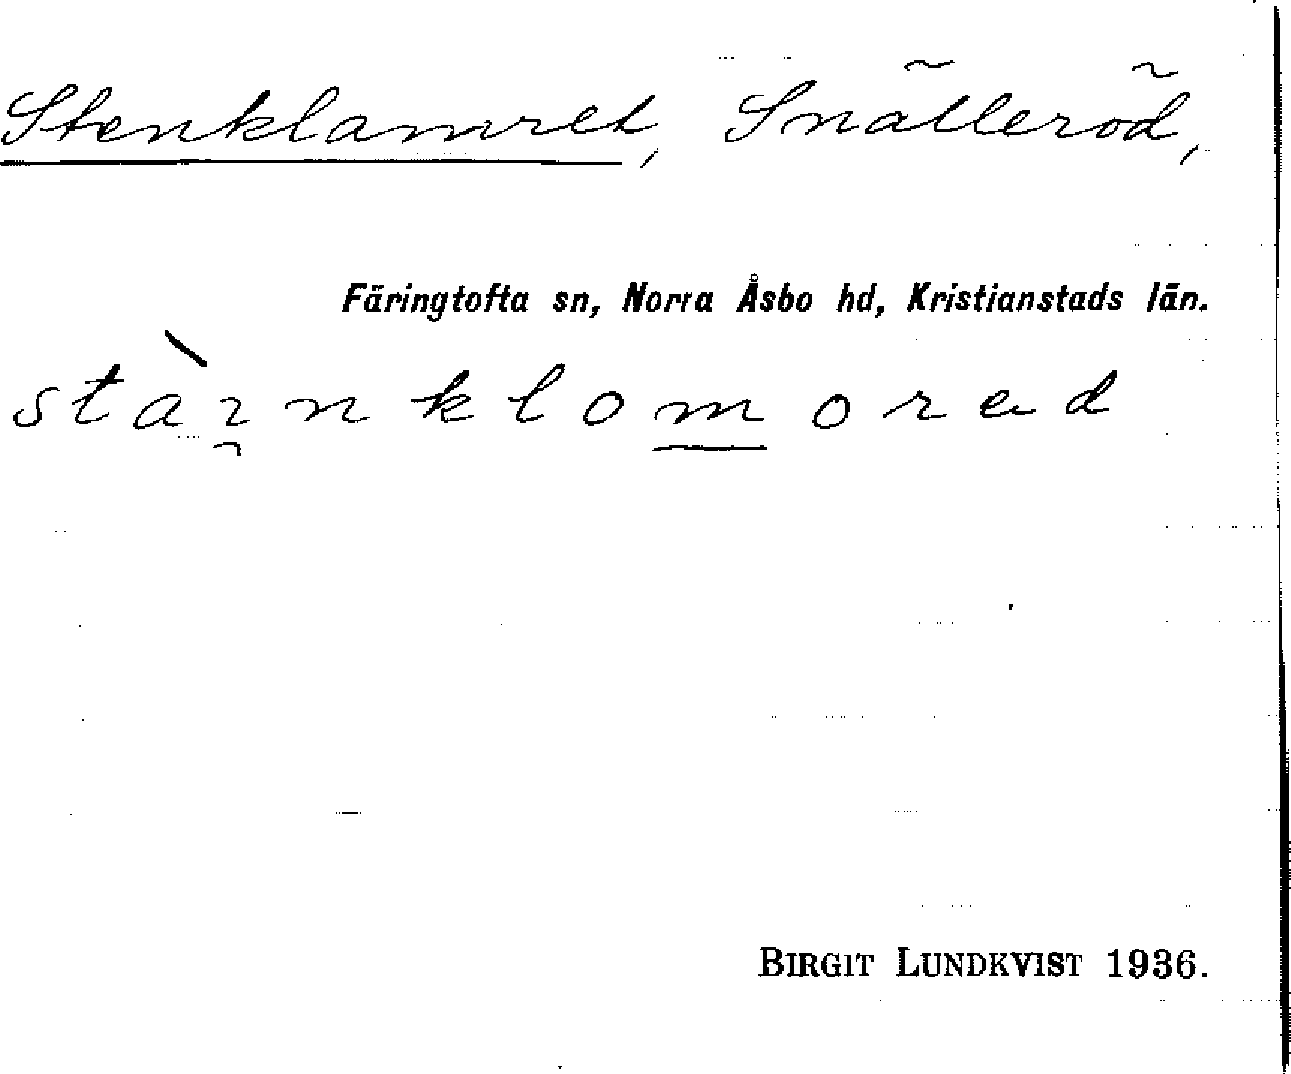 Stenklamret, Snälleröd,
Färingtofta sn, Norra Åsbo hd, Kristianstads län.
stàı̯nklom̲orad
BIRGIT LUNDKVIST 1936.